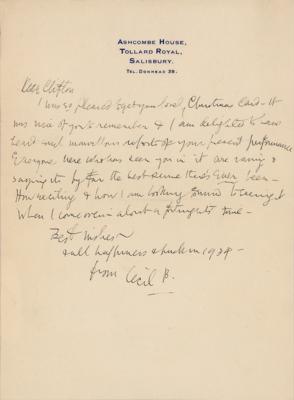 ASHCOMBE HOUSE,
TOLLARD ROYAL,
SALISBURY.
TEL. DONHEAD 39.
Dear Clifton
I was so pleased to get your lovely Christmas Card - It
was nice of you to remember & I am delighted to have
heard such marvellous reports of your present performance
Everyone here who has seen you in it are raving &
saying it's by far the best
How exciting & how I am looking forward to seeing it
When I come over - about a fortnights time -
Best wishes
& all happiness & luck in
from Cecil B.